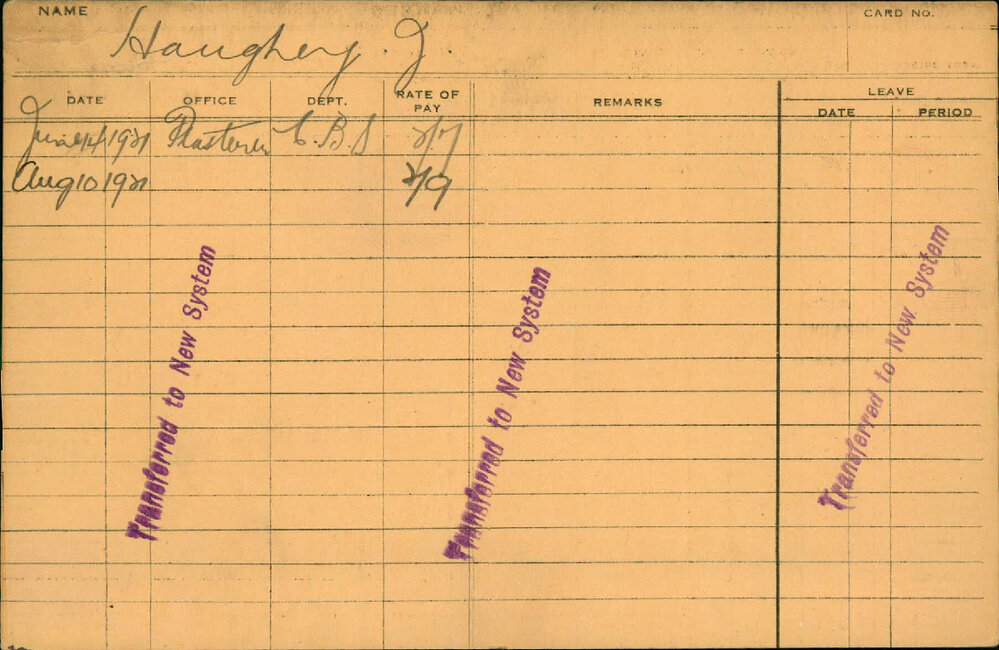 NAME
CARD NO.
Haughey. J.
DATE OFFICE DEPT. RATE OF PAY REMARKS LEAVE
DATE PERIOD
June 14 1921 Plasterer C.B.S 2/7
Aug 10 1921 2/9
Transferred to New System
Transferred to New System
Transferred to New System